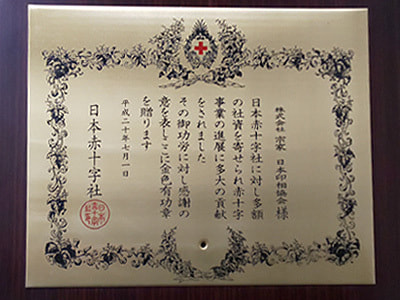 株式会社 宗家 日本印相協会 様
日本赤十字社に対し多額
の社資を寄せられ赤十字
事業の進展に多大の貢献
をされました
その御功労に対し感謝の
意を表しここに金色有功章
を贈ります
平成二十年七月一日
日本赤十字社